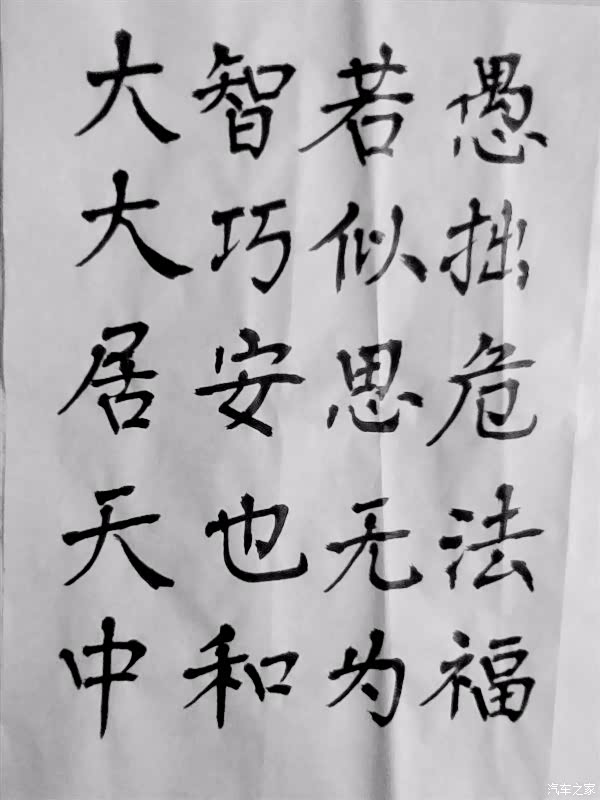 大智若愚
大巧似拙
居安思危
天也无法
中和为福
汽车之家